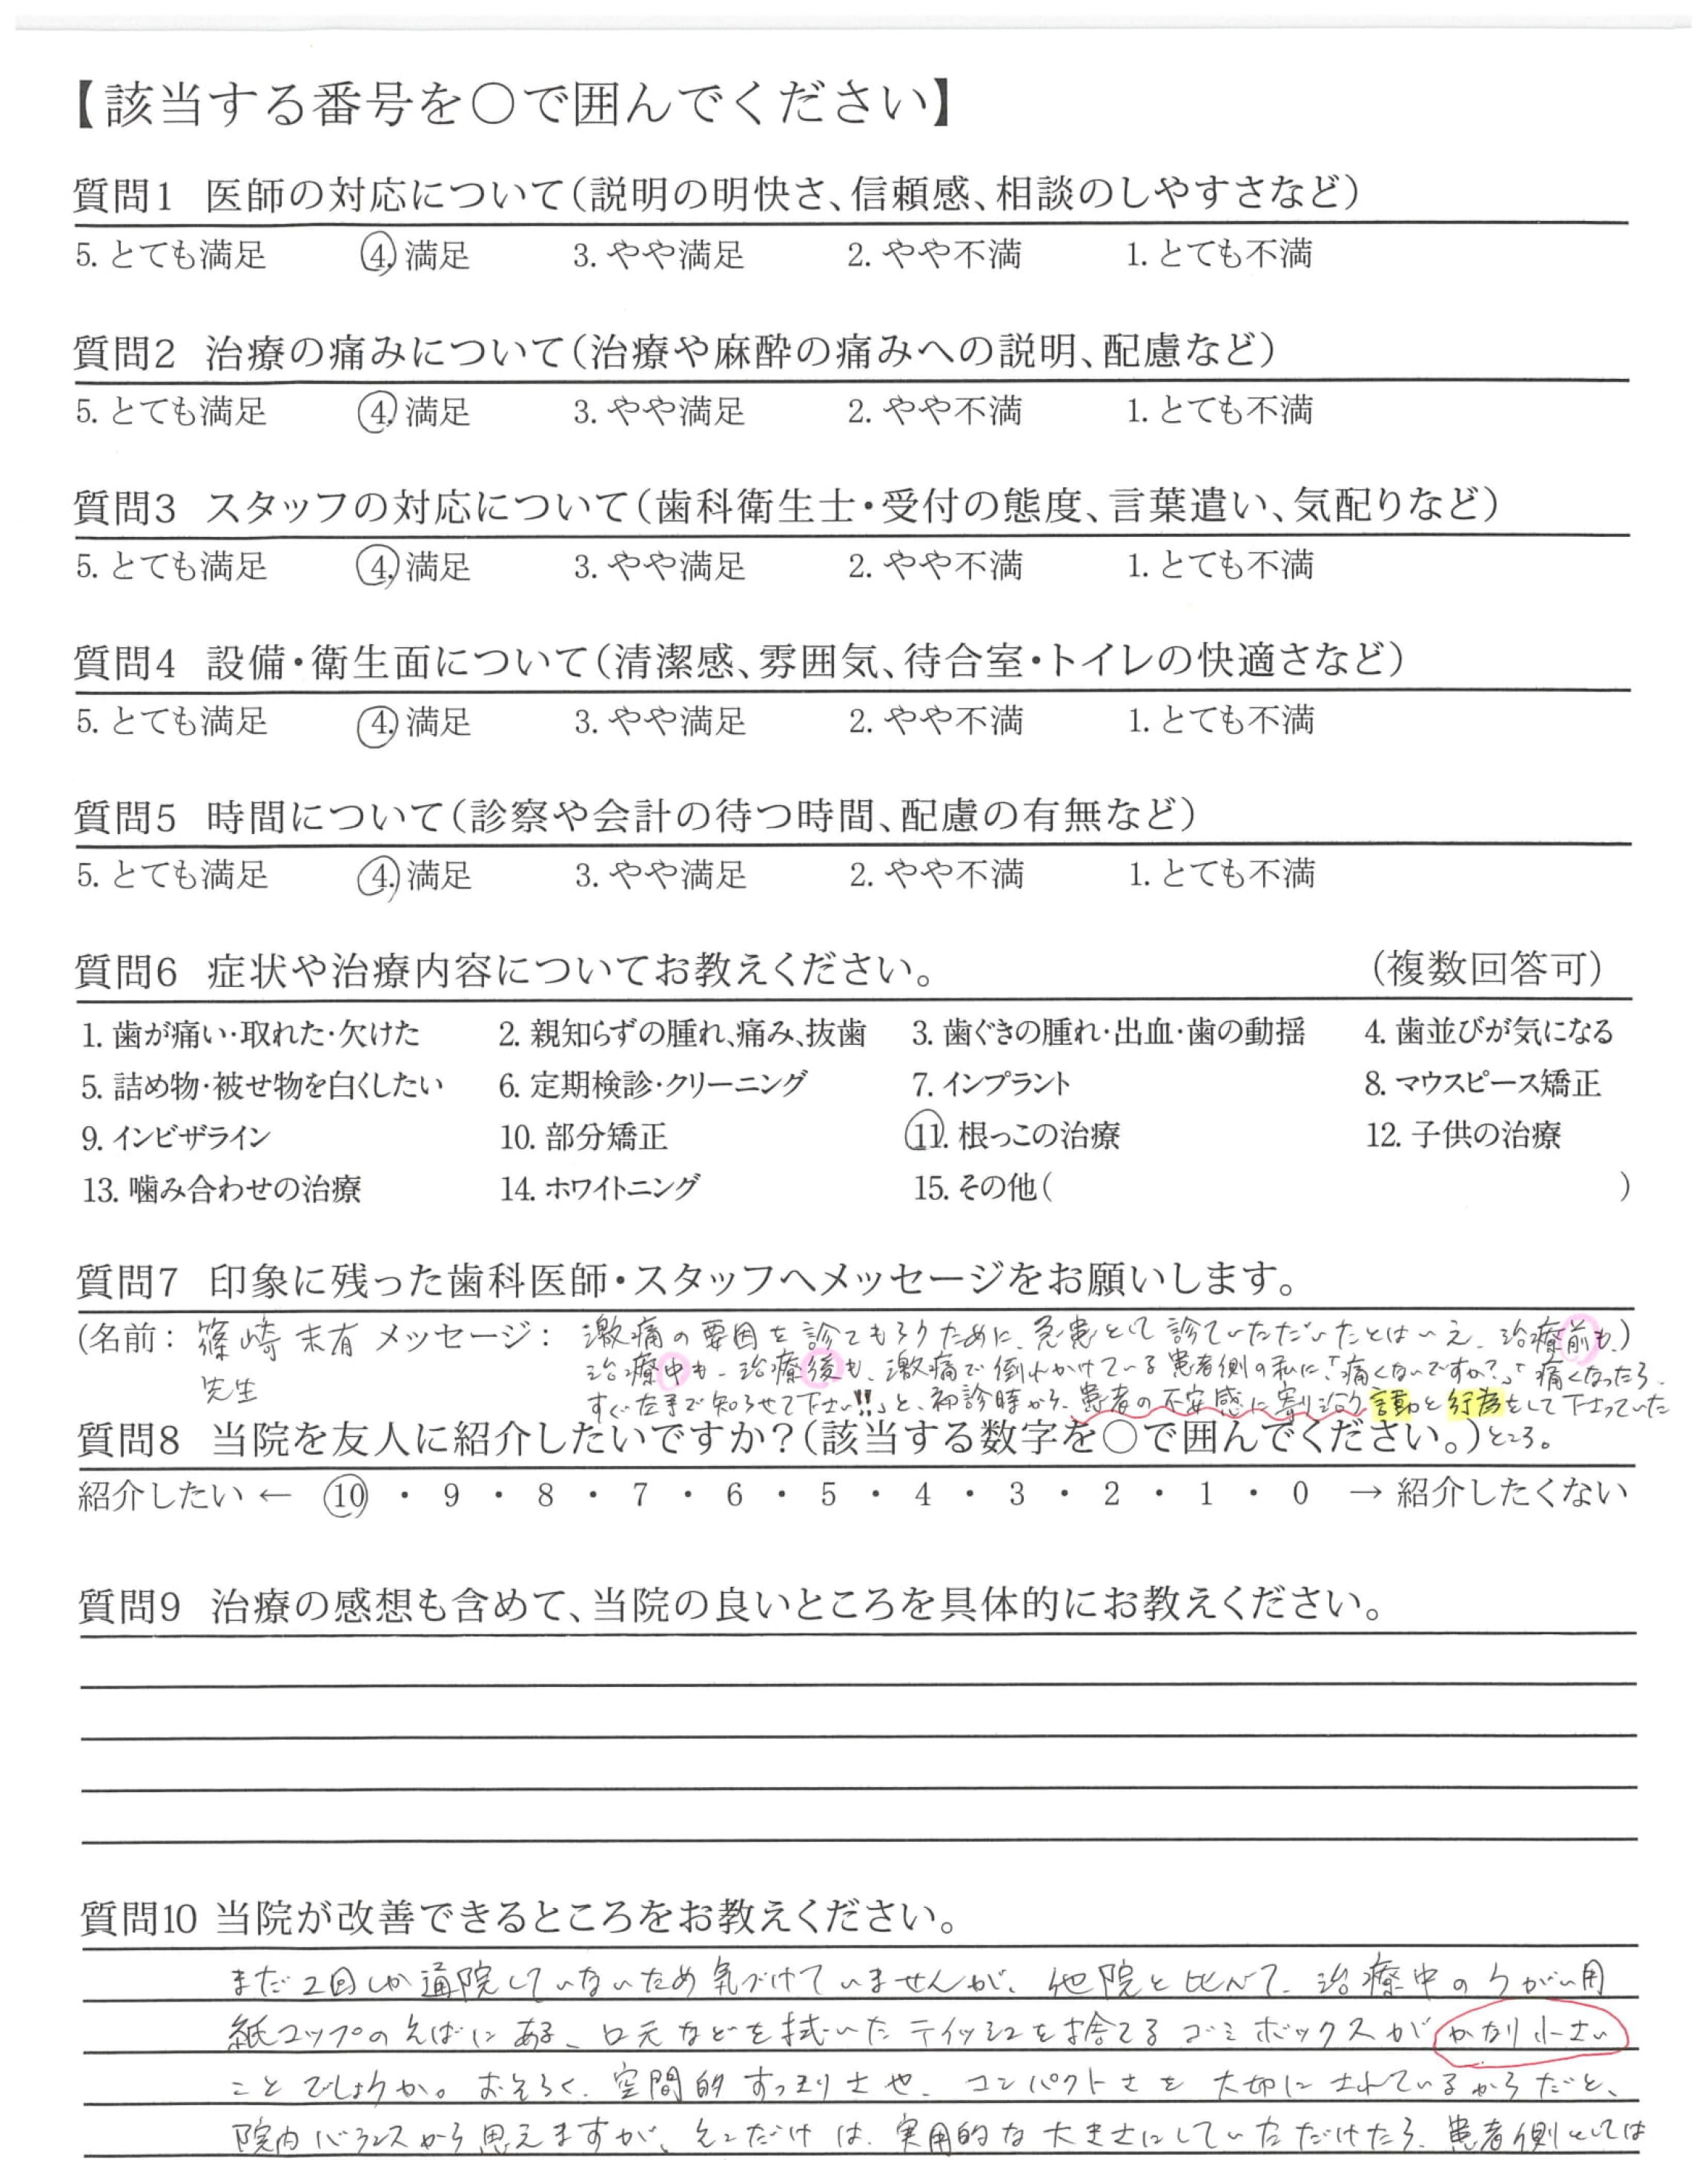 【該当する番号を○で囲んでください】
質問1 医師の対応について(説明の明快さ、信頼感、相談のしやすさなど)
5. とても満足 4. 満足 3. やや満足 2. やや不満 1. とても不満
質問2 治療の痛みについて(治療や麻酔の痛みへの説明、配慮など)
5. とても満足 4. 満足 3. やや満足 2. やや不満 1. とても不満
質問3 スタッフの対応について(歯科衛生士・受付の態度、言葉遣い、気配りなど)
5. とても満足 4. 満足 3. やや満足 2. やや不満 1. とても不満
質問4 設備・衛生面について(清潔感、雰囲気、待合室・トイレの快適さなど)
5. とても満足 4. 満足 3. やや満足 2. やや不満 1. とても不満
質問5 時間について(診察や会計の待つ時間、配慮の有無など)
5. とても満足 4. 満足 3. やや満足 2. やや不満 1. とても不満
質問6 症状や治療内容についてお教えください。 (複数回答可)
1. 歯が痛い・取れた・欠けた 2. 親知らずの腫れ、痛み、抜歯 3. 歯ぐきの腫れ・出血・歯の動揺 4. 歯並びが気になる
5. 詰め物・被せ物を白くしたい 6. 定期検診・クリーニング 7. インプラント 8. マウスピース矯正
9. インビザライン 10. 部分矯正 11. 根っこの治療 12. 子供の治療
13. 噛み合わせの治療 14. ホワイトニング 15. その他( )
質問7 印象に残った歯科医師・スタッフへメッセージをお願いします。
(名前: 篠崎 末有 メッセージ: 激痛の要因を診てもらうために、急患として診ていただいたとはいえ、治療前も、)
治療中も、治療後も、激痛で倒れかけている患者側の私に、「痛くないですか?」「痛くなったら、
先生
すぐ左手で知らせて下さい!!」と、初診時から、患者の不安感に寄り沿う言動と行為をして下さっていた
ところ。
質問8 当院を友人に紹介したいですか?(該当する数字を○で囲んでください。)
紹介したい ← 10 ・ 9 ・ 8 ・ 7 ・ 6 ・ 5 ・ 4 ・ 3 ・ 2 ・ 1 ・ 0 → 紹介したくない
質問9 治療の感想も含めて、当院の良いところを具体的にお教えください。
質問10 当院が改善できるところをお教えください。
まだ2回しか通院していないため気づけていませんが、他院と比べて、治療中のうがい用
紙コップのそばにある、口元などを拭いたティッシュを捨てるゴミボックスがかなり小さい
ことでしょうか。おそらく、空間的すっきりさや、コンパクトさを大切にされているからだと、
院内バランスから思えますが、そこだけは、実用的な大きさにしていただけたら、患者側としては